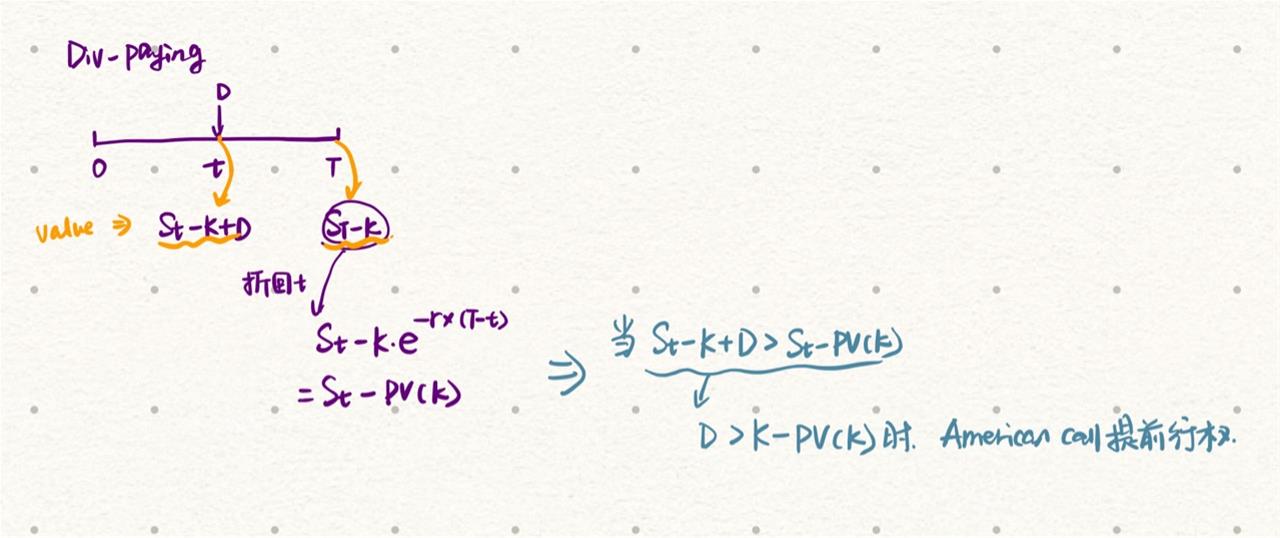 Div-paying
D
0 t T
value ⇒ St-K+D ST-K
折回t
St-K·e^-r×(T-t)
=St-PV(K)
⇒ 当 St-K+D>St-PV(K)
D>K-PV(K)时. American call提前行权.